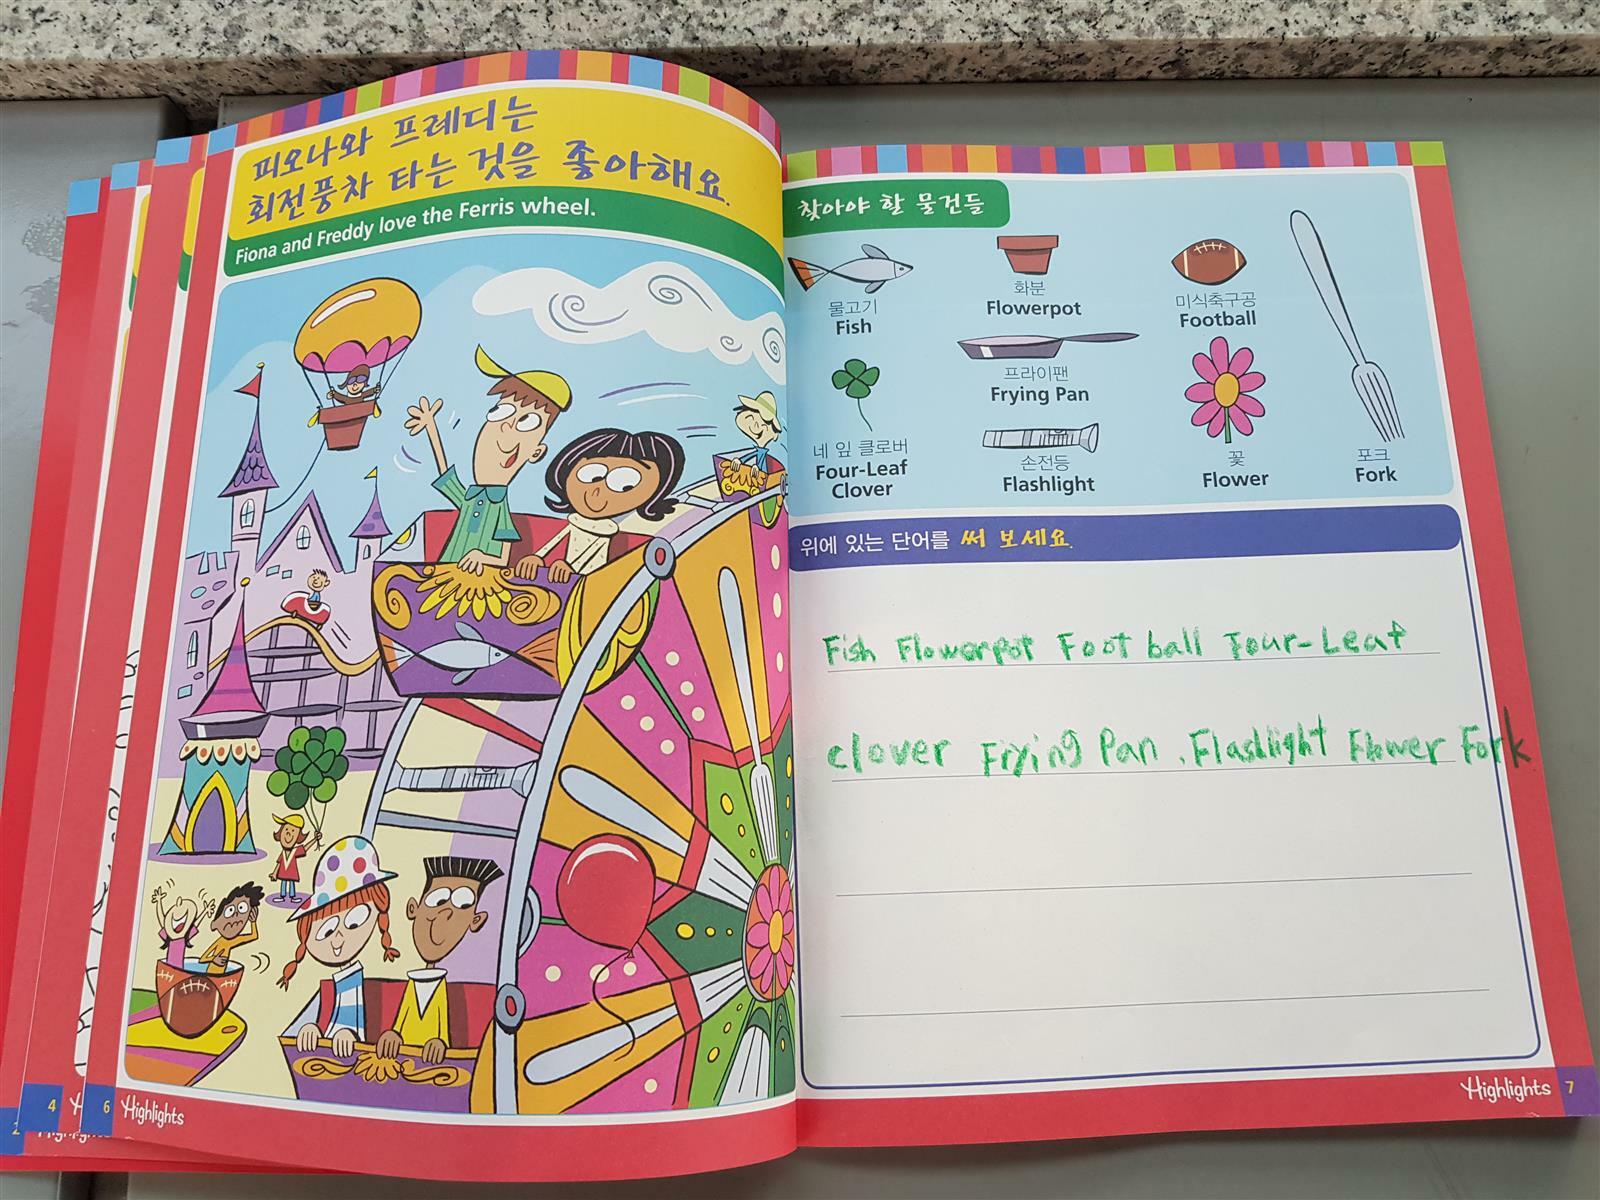 피오나와 프레디는
회전풍차 타는 것을 좋아해요.
Fiona and Freddy love the Ferris wheel.
4
6
Highlights
찾아야 할 물건들
물고기
Fish
화분
Flowerpot
미식축구공
Football
프라이팬
Frying Pan
네 잎 클로버
Four-Leaf
Clover
손전등
Flashlight
꽃
Flower
포크
Fork
위에 있는 단어를 써 보세요.
Fish Flowerpot Foot ball Four-Leaf
clover Frying Pan . Flashlight Flower Fork
Highlights 7